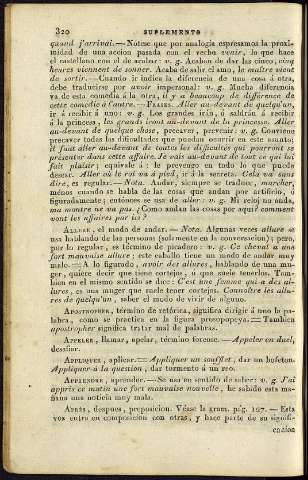 320 SUPLEMENTO
quand j'arrivai.—Nótese que por analogía expresamos la proxi-
midad de una accion pasada con el verbo venir, lo que hace
el castellano con el de acabar: v. g. Acaban de dar las cinco, cinq
heures viennent de sonner. Acaba de salir el amo, le maître vient
de sortir.—Cuando ir indica la diferencia de una cosa á otra,
debe traducirse por avoir impersonal: v. g. Mucha diferencia
va de esta comedia á la otra, il y a beaucoup de différence de
cette comédie á l'autre.—FRASES. Aller au-devant de quelqu'un,
ir á recibir á uno: v. g. Los grandes irán, ó saldrán á recibir
á la princesa, les grands iront au-devant de la princesse. Aller
au-devant de quelque chose, precaver, prevenir: v. g. Conviene
precaver todas las dificultades que puedan ocurrir en este asunto,
il faut aller au-devant de toutes les difficultés qui pourront se
présenter dans cette affaire. Je vais au-devant de tout ce qui lui
fait plaisir; equivale á: le prevengo en todo lo que puede
desear. Aller où le roi va á pied, ir á la secreta. Cela va sans
dire, es regular.—Nota. Andar, siempre se traduce, marcher,
ménos cuando se habla de las cosas que andan por artificio, ó
figuradamente; entónces se usa de aller: v. g. Mi reloj no anda,
ma montre ne va pas. ¿Como andan las cosas por aquí? comment
vont les affaires par ici?
ALLURE, el modo de andar.—Nota. Algunas veces allure se
usa hablando de las personas (solamente en la conversacion); pero,
por lo regular, es término de picadero: v. g. Ce cheval a une
fort mauvaise allure; este caballo tiene un modo de andar muy
malo.—A lo figurado, avoir des allures, hablando de una mu-
ger, quiere decir que tiene cortejos, ó que suele tenerlos. Tam-
bien en el mismo sentido se dice: C'est une femme qui a des al-
lures, es una muger que suele tener cortejos. Connoître les allu-
res de quelqu'un, saber el modo de vivir de alguno.
APOSTROPHER, término de retórica, significa dirigir á uno la pa-
labra, como se practica en la figura prosopopeya.—Tambien
apostropher significa tratar mal de palabras.
APPELER, llamar, apelar, término forense.—Appeler en duel,
desafiar.
APPLIQUER, aplicar.—Appliquer un soufflet, dar un bofeton.
Appliquer à la question, dar tormento á un reo.
APPRENDRE, aprender.—Se usa en sentido de saber: v. g. J'ai
appris ce matin une fort mauvaise nouvelle, he sabido esta ma-
ñana una noticia muy mala.
APRÈS, despues, preposicion. Véase la gram. pág. 167.—Esta
voz entra en composicion con otras, y hace parte de su signifi-
cacion